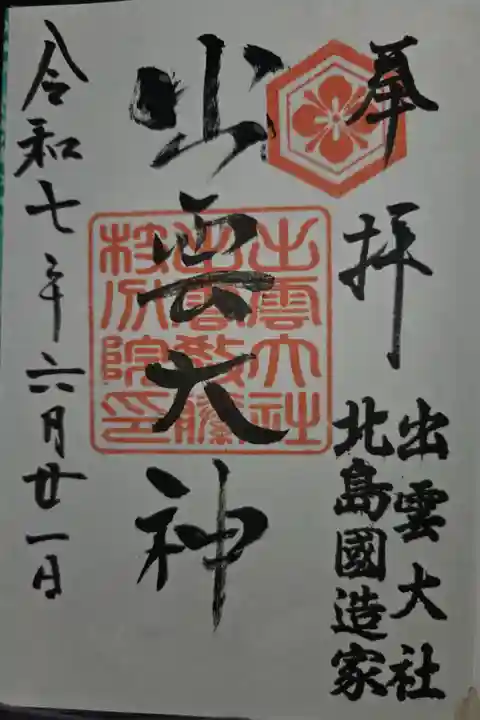 奉拝
出雲大社
北島國造家
出雲大神
出雲大社
出雲教藤
枝分院印
令和七年六月廿一日